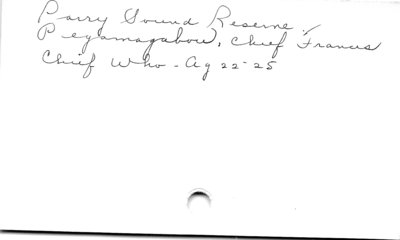 Parry Sound Reserve
Pegamagabow, Chief Francis
Chief Who - Ag 22-25